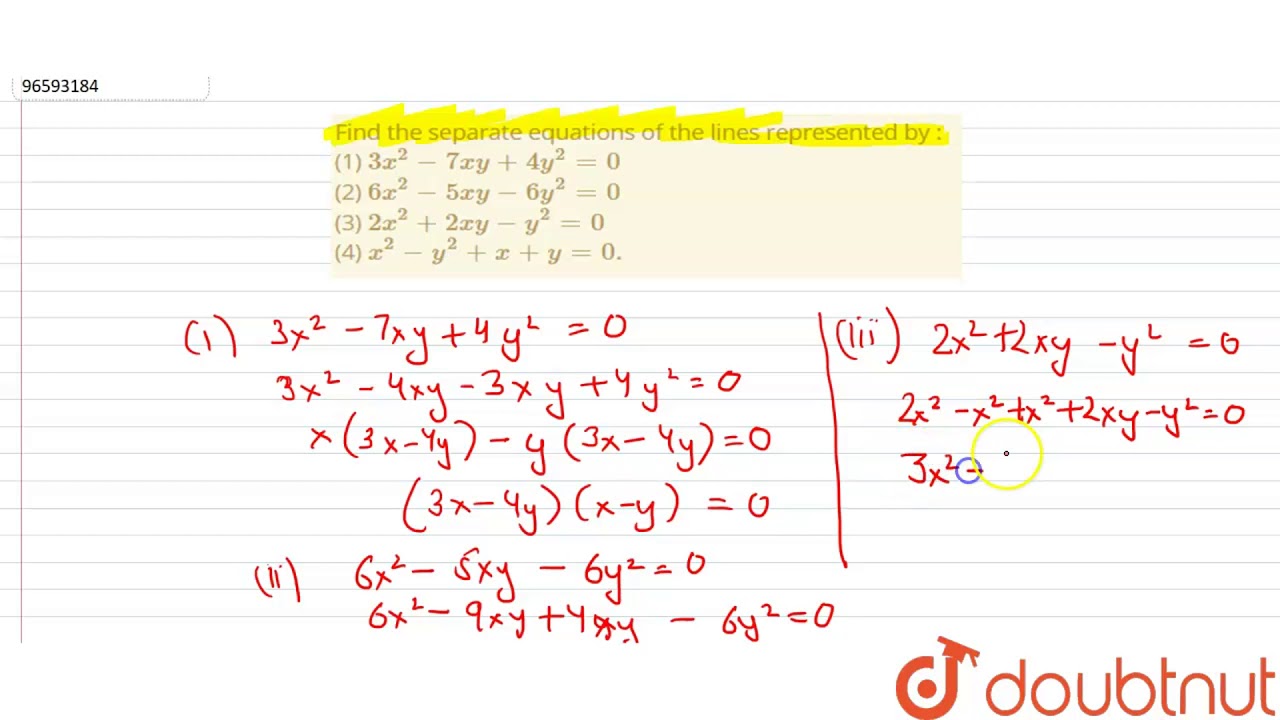 96593184
Find the separate equations of the lines represented by :
(1) 3x² − 7xy + 4y² = 0
(2) 6x² − 5xy − 6y² = 0
(3) 2x² + 2xy − y² = 0
(4) x² − y² + x + y = 0.
(i) 3x² − 7xy + 4y² = 0
3x² − 4xy − 3xy + 4y² = 0
x(3x−4y) − y(3x−4y) = 0
(3x−4y)(x−y) = 0
(ii) 6x² − 5xy − 6y² = 0
6x² − 9xy + 4xy − 6y² = 0
(iii) 2x² + 2xy − y² = 0
2x² − x² + x² + 2xy − y² = 0
3x² −
doubtnut